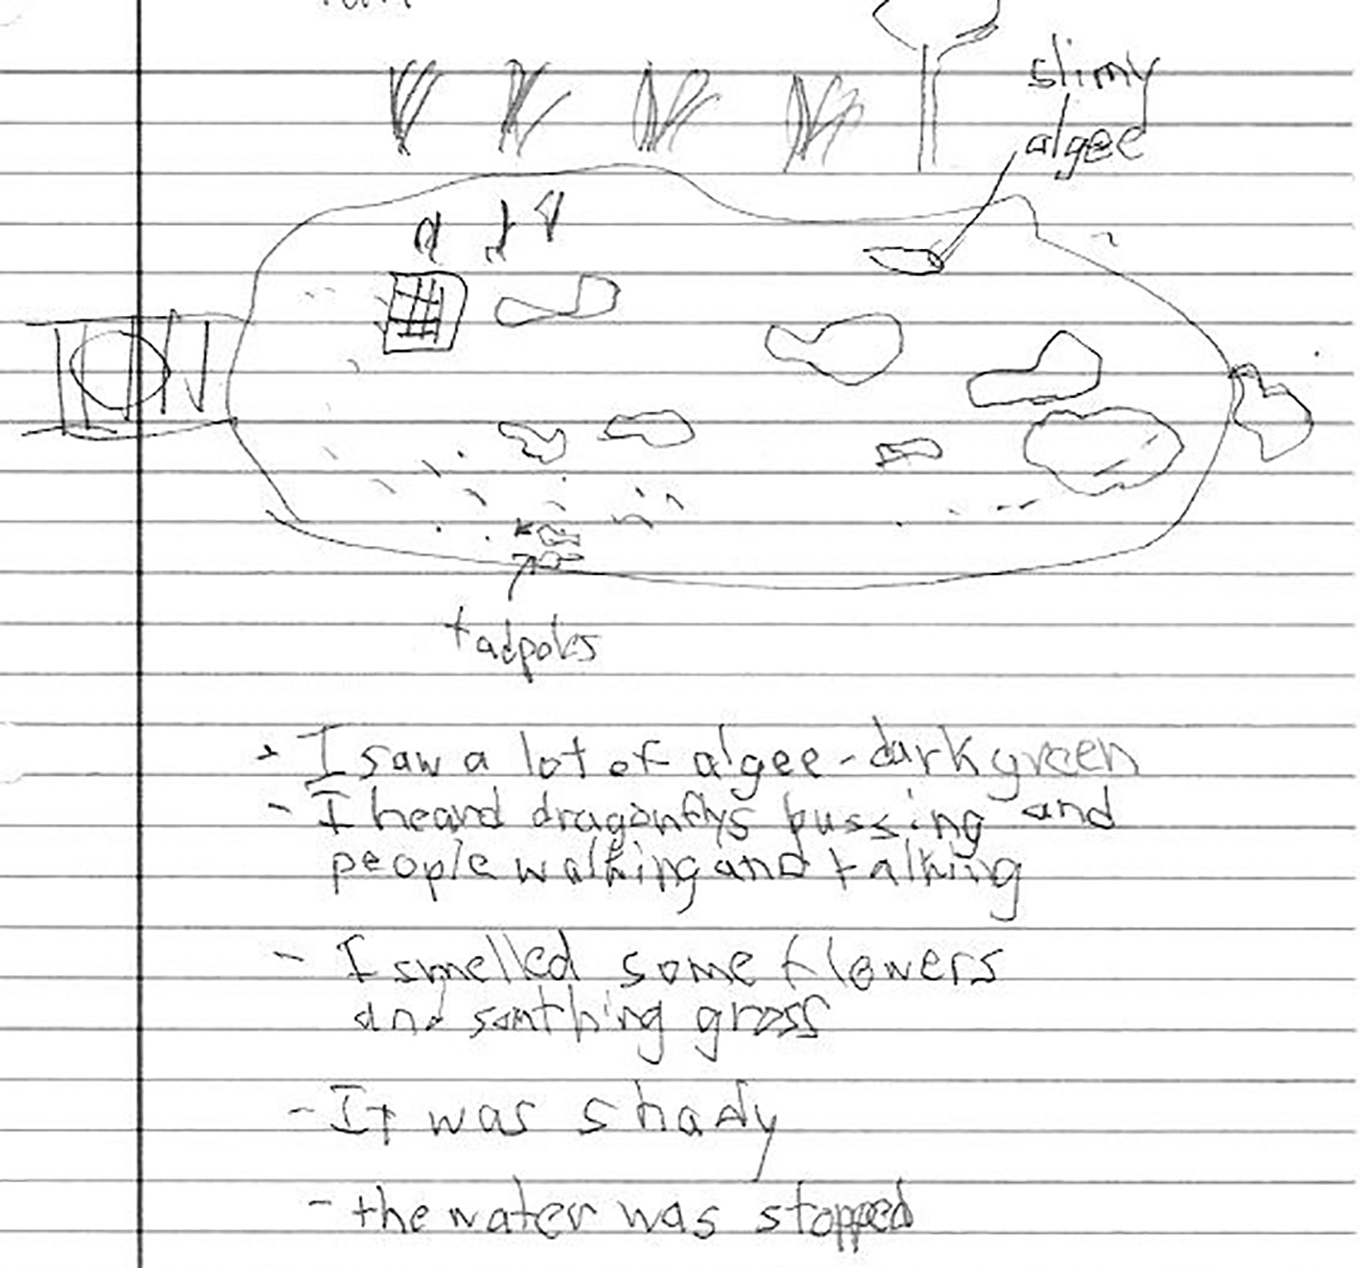 slimy
algee
tadpoles
- I saw a lot of algee - dark green
- I heard dragonflys bussing and
people walking and talking
- I smelled some flowers
and somthing gross
- It was shady
- the water was stopped